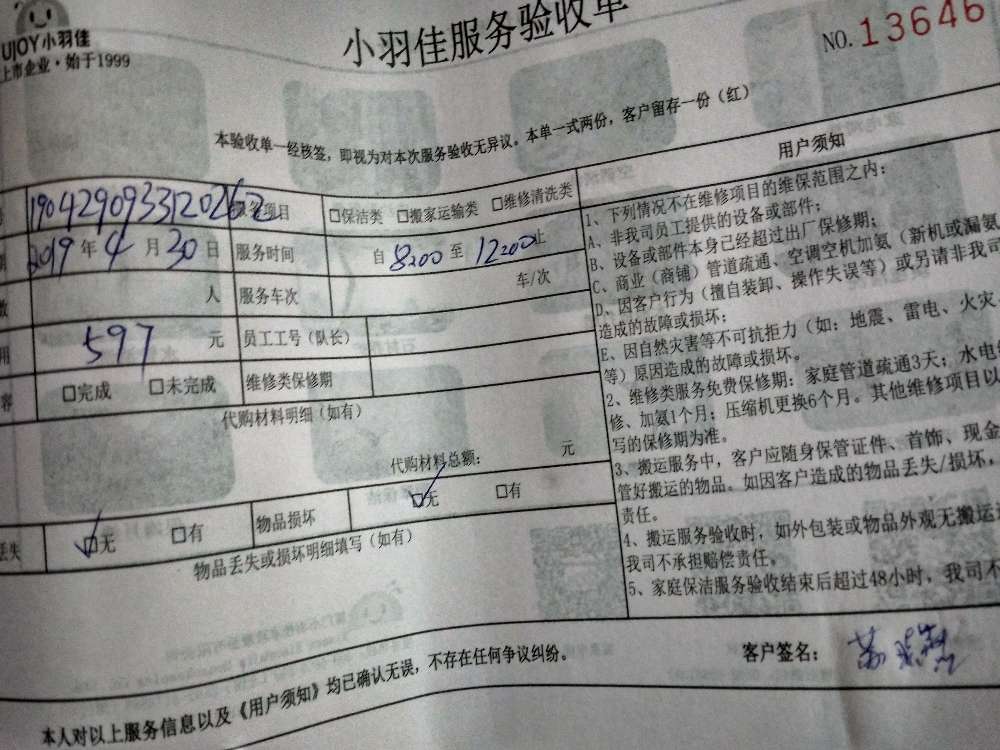 UJOY小羽佳
上市企业·始于1999
小羽佳服务验收单
NO. 13646
本验收单一经核签，即视为对本次服务验收无异议。本单一式两份，客户留存一份（红）
服务项目 □保洁类 □搬家运输类 □维修清洗类
2019年4月30日 服务时间 自 8:00 至 12:00 止
人 服务车次 车/次
597 元 员工工号（队长）
□完成 □未完成 维修类保修期
代购材料明细（如有）
代购材料总额： 元
丢失 ☑无 □有 物品损坏 ☑无 □有
物品丢失或损坏明细填写（如有）
用户须知
1、下列情况不在维修项目的维保范围之内：
A、非我司员工提供的设备或部件；
B、设备或部件本身已经超过出厂保修期；
C、商业（商铺）管道疏通、空调空机加氨（新机或漏氨
D、因客户行为（擅自装卸、操作失误等）或另请非我司
造成的故障或损坏；
E、因自然灾害等不可抗拒力（如：地震、雷电、火灾、
等）原因造成的故障或损坏。
2、维修类服务免费保修期：家庭管道疏通3天；水电
修、加氨1个月；压缩机更换6个月。其他维修项目以
写的保修期为准。
3、搬运服务中，客户应随身保管证件、首饰、现金
管好搬运的物品。如因客户造成的物品丢失/损坏，
责任。
4、搬运服务验收时，如外包装或物品外观无搬运
我司不承担赔偿责任。
5、家庭保洁服务验收结束后超过48小时，我司不
客户签名：
本人对以上服务信息以及《用户须知》均已确认无误，不存在任何争议纠纷。